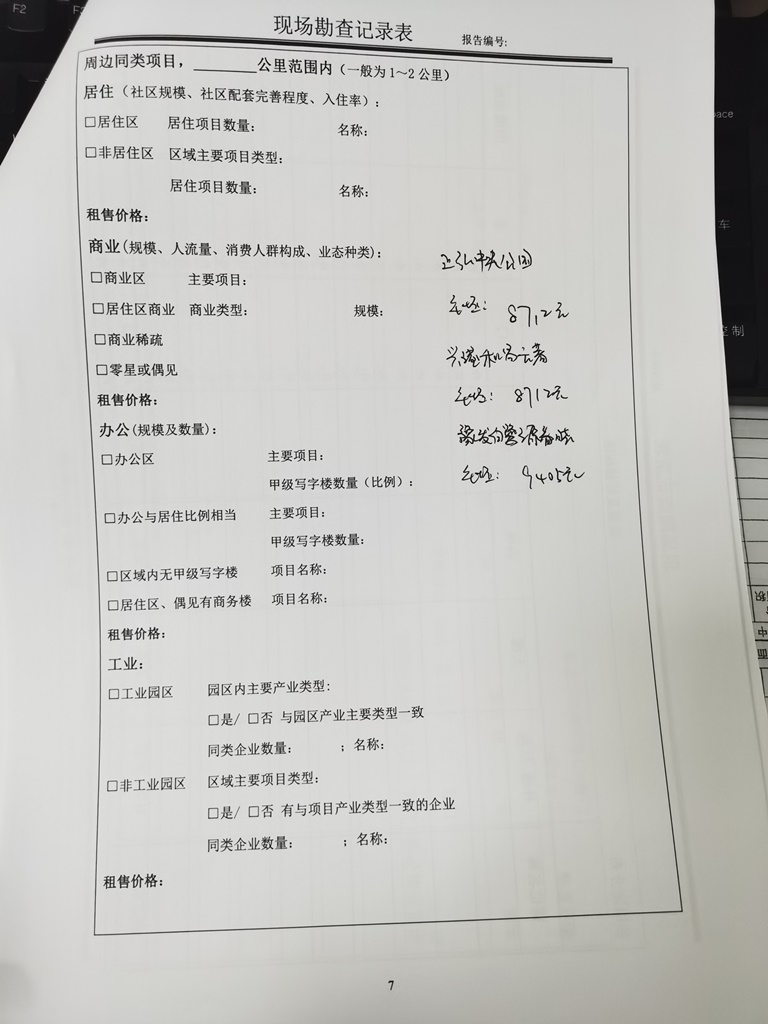 F2
现场勘查记录表
报告编号:
周边同类项目，________公里范围内（一般为1～2公里）
居住（社区规模、社区配套完善程度、入住率）：
□居住区 居住项目数量： 名称：
□非居住区 区域主要项目类型：
居住项目数量： 名称：
租售价格：
商业(规模、人流量、消费人群构成、业态种类)： 正弘中央公园
□商业区 主要项目：
□居住区商业 商业类型： 规模： 8712元
□商业稀疏
□零星或偶见
租售价格： 8712元
办公(规模及数量)：
□办公区 主要项目：
甲级写字楼数量（比例）： 9405元
□办公与居住比例相当 主要项目：
甲级写字楼数量：
□区域内无甲级写字楼 项目名称：
□居住区、偶见有商务楼 项目名称：
租售价格：
工业：
□工业园区 园区内主要产业类型:
□是/ □否 与园区产业主要类型一致
同类企业数量： ；名称：
□非工业园区 区域主要项目类型：
□是/ □否 有与项目产业类型一致的企业
同类企业数量： ；名称：
租售价格：
7